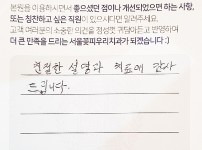 본원을 이용하시면서 좋으셨던 점이나 개선되었으면 하는 사항,
또는 칭찬하고 싶은 직원이 있으시다면 알려주세요.
고객 여러분의 소중한 의견을 정성껏 귀담아듣고 반영하며
더 큰 만족을 드리는 서울꽃피우리치과가 되겠습니다 :)
친절한 설명과 치료에 감사
드립니다.